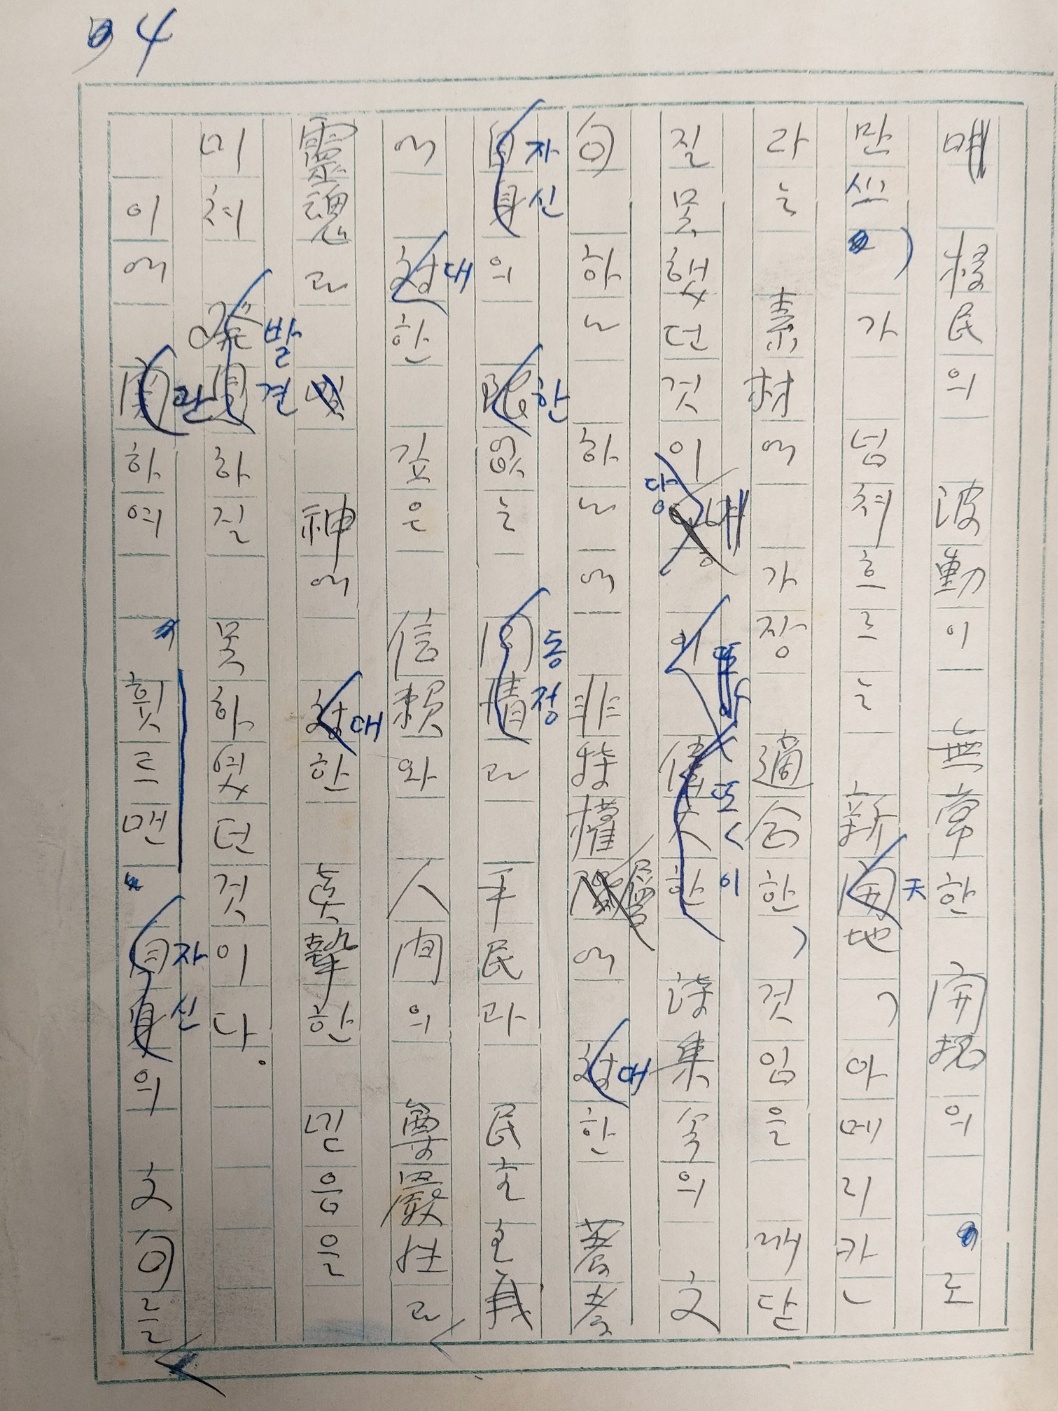 94
移民의 波動이 無常한 開拓의 도
만 쓰)가 넘쳐흐르는 新天地, 아메리카ㄴ
라는 素材에 가장 適合한, 것임을 깨닫
질 못했던 것이 당 또 偉大한 詩集 속의 文
句 하나하나에 非特權層에 대한 蓄孝
자신의 한없는 동정과 平民과 民主主義
에 대한 깊은 信賴와 人間의 尊嚴性과
靈魂과 神에 대한 眞摯한 믿음을
미처 발견하질 못하였던 것이다.
이에 관하여 “휫트맨” 자신의 文句를